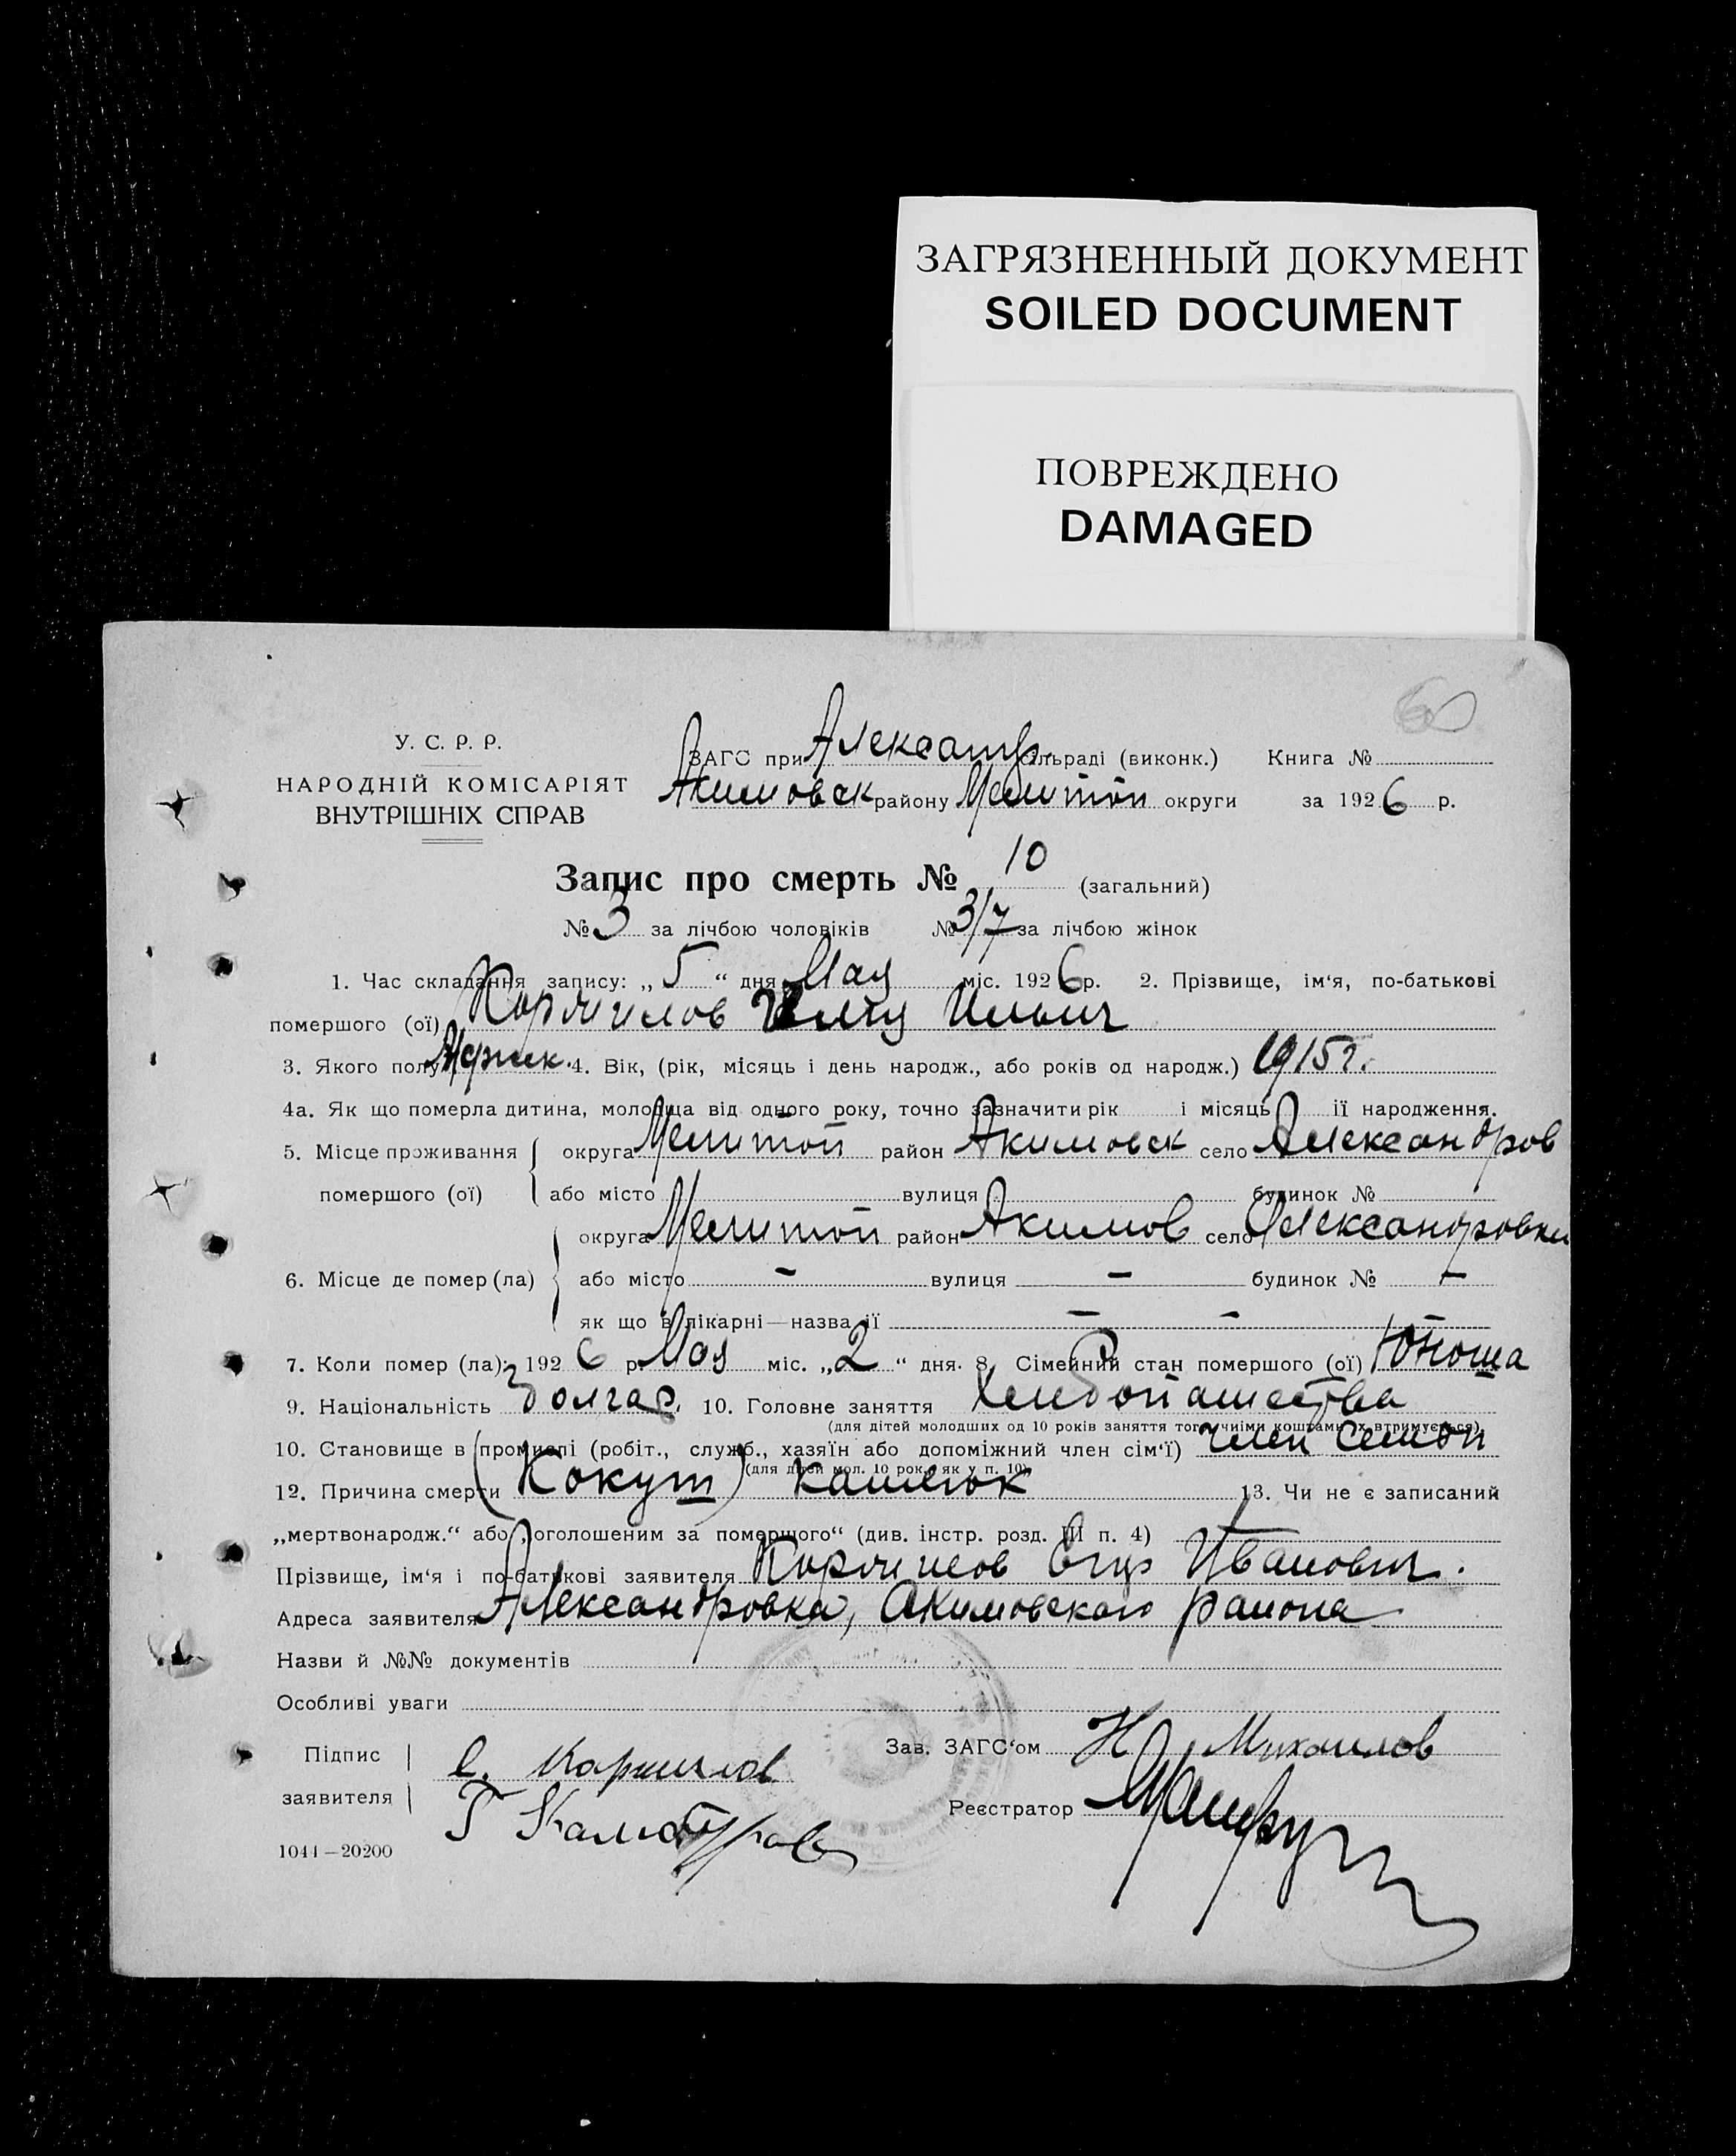 ЗАГРЯЗНЕННЫЙ ДОКУМЕНТ
SOILED DOCUMENT
ПОВРЕЖДЕНО
DAMAGED
60
У. С. Р. Р.
НАРОДНІЙ КОМІСАРІЯТ
ВНУТРІШНІХ СПРАВ
ЗАГС при Александр. сільраді (виконк.) Книга №
Акимовск району Мелитоп округи за 1926 р.
Запис про смерть № 10 (загальний)
№ 3 за лічбою чоловіків № 3/7 за лічбою жінок
1. Час складання запису: „5“ дня Мая міс. 1926 р. 2. Прізвище, ім‘я, по-батькові
помершого (ої) Ильич
3. Якого полу Мужск. 4. Вік, (рік, місяць і день народж., або років од народж.) 1915 г.
4а. Як що померла дитина, молодща від одного року, точно зазначити рік і місяць її народження.
5. Місце проживання округа Мелитоп район Акимовск село Александров
помершого (ої) або місто вулиця будинок №
округа Мелитоп район Акимов село Александровки
6. Місце де помер (ла) або місто - вулиця - будинок № -
як що в лікарні—назва її - -
7. Коли помер (ла): 1926 р. Мая міс. „2“ дня. 8. Сімейний стан помершого (ої) Юноша
9. Національність Болгар. 10. Головне заняття Хлебопашества
(для дітей молодших од 10 років заняття того, чиїми коштами їх втримується)
10. Становище в промислі (робіт., служб., хазяїн або допоміжний член сім‘ї) член семьи
(для дітей мол. 10 рок., як у п. 10)
12. Причина смерти (Кокуш) кашлюк 13. Чи не є записаний
„мертвонародж.“ або „оголошеним за помершого“ (див. інстр. розд. III п. 4)
Прізвище, ім‘я і по-батькові заявителя Иванович.
Адреса заявителя Александровка, Акимовского района
Назви й №№ документів
Особливі уваги
Підпис
заявителя
Зав. ЗАГС‘ом Н Михайлов
Реєстратор
1044—20200